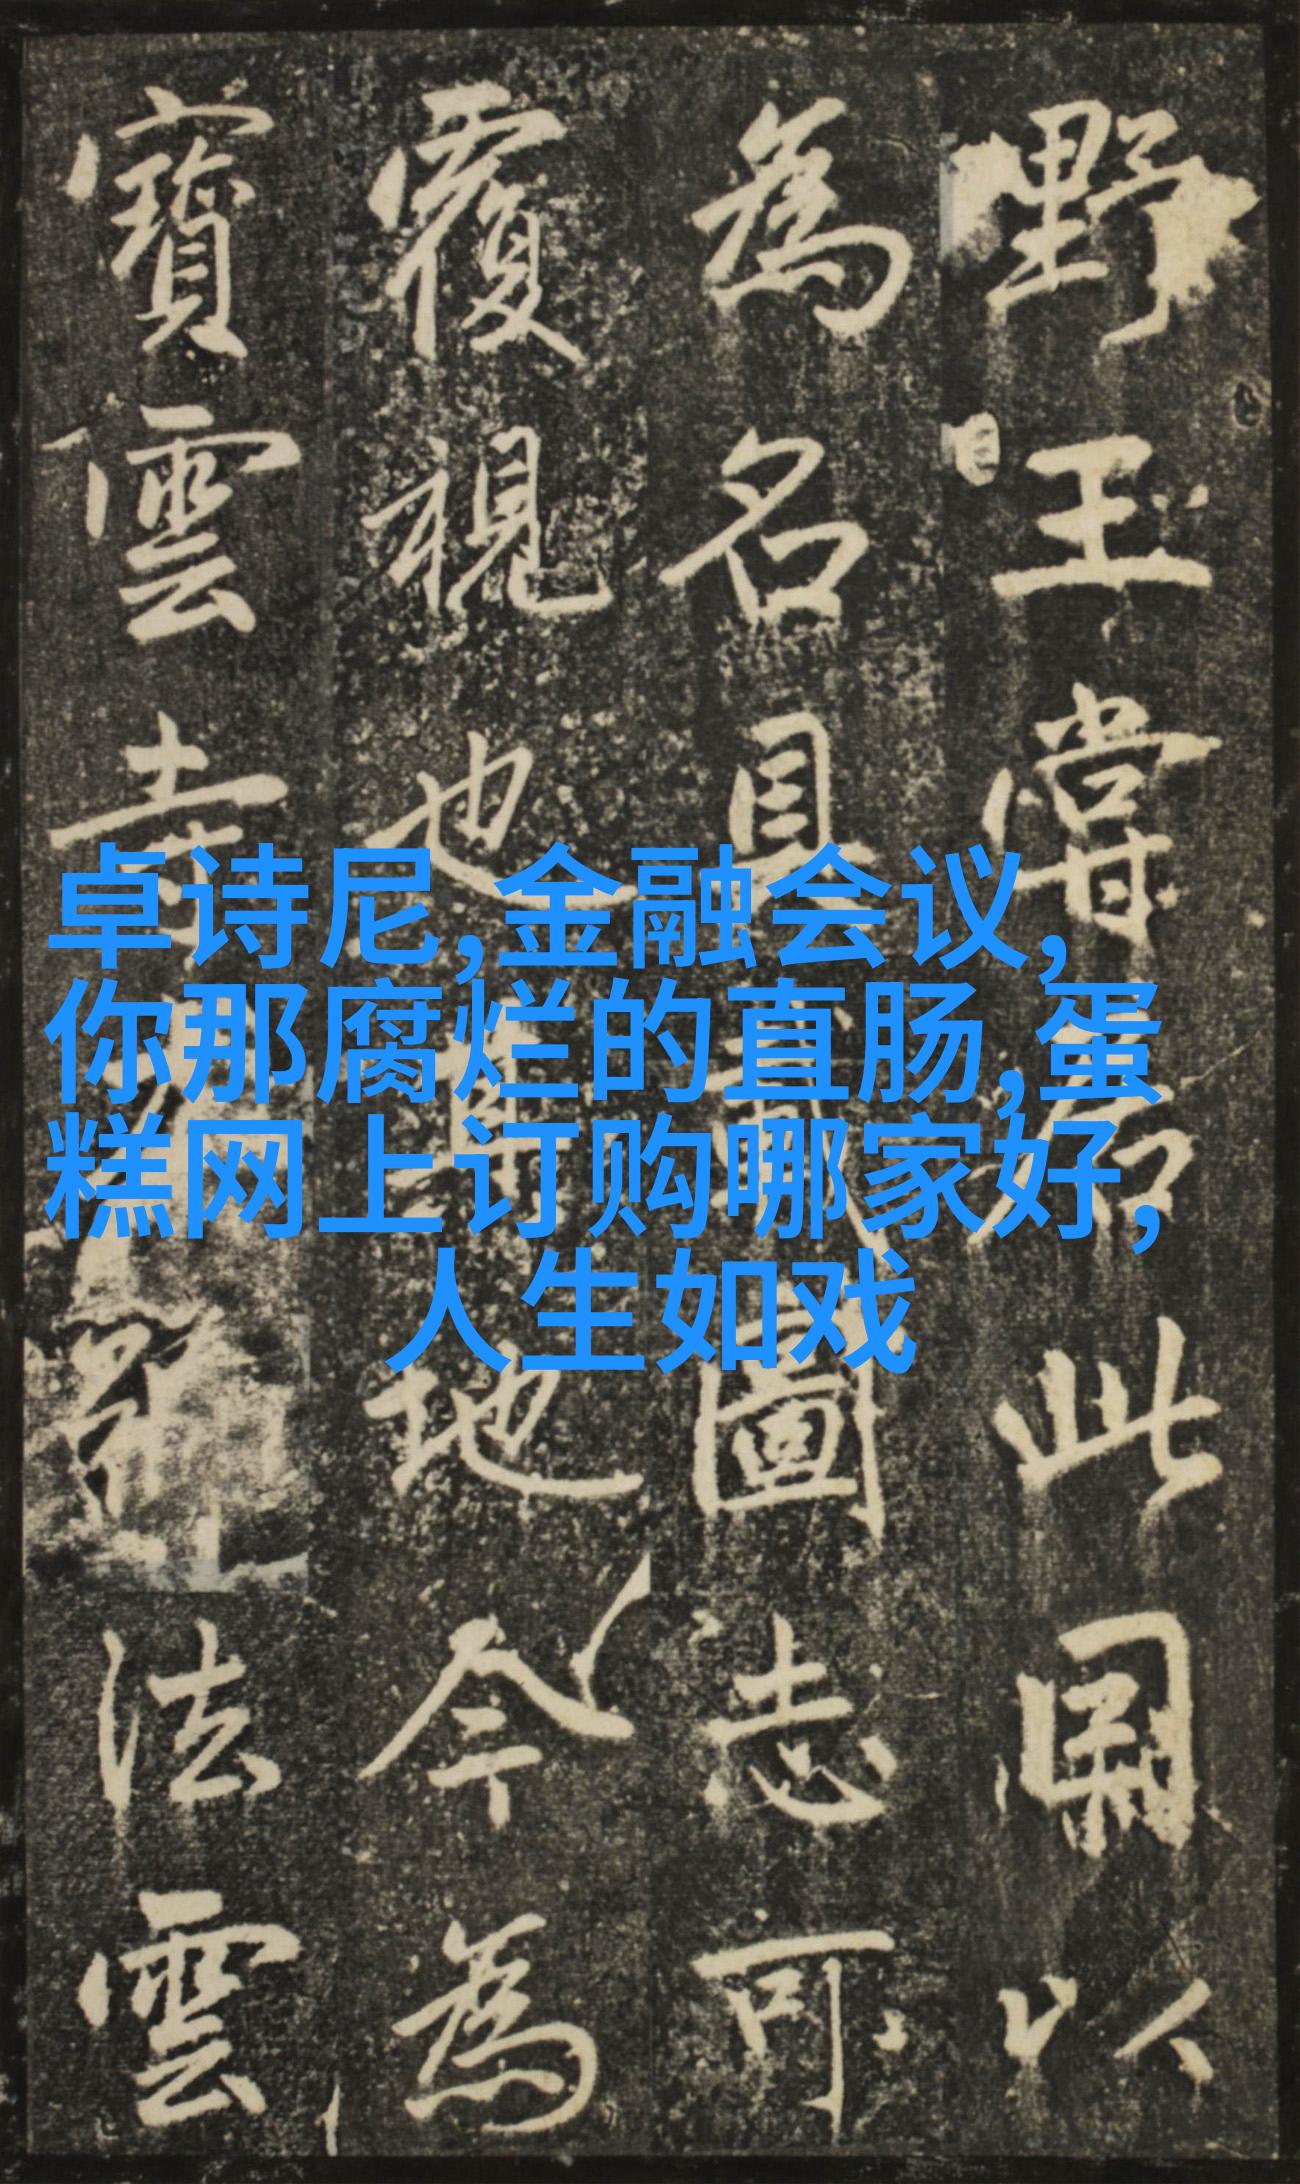 野王嘗居此因以
為名具載圖志可
覆視也其地今為
寶雲寺
法雲
卓诗尼,金融会议,
你那腐烂的直肠,蛋
糕网上订购哪家好,
人生如戏